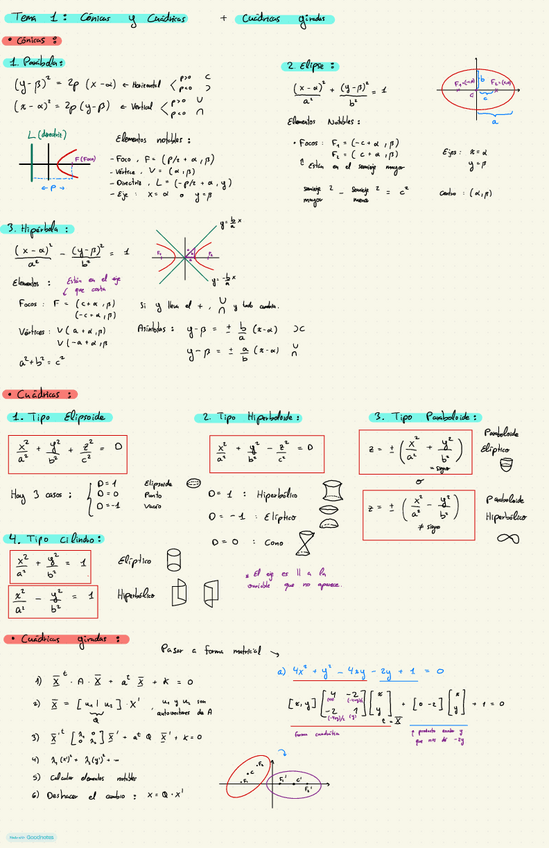 Tema 1: Cónicas y Cuádricas + Cuádricas giradas
• Cónicas:
1. Parábola:
(y-β)² = 2p (x-α) ← Horizontal < p>0 ⊂ p<0 ⊃
(x-α)² = 2p (y-β) ← Vertical < p>0 ∪ p<0 ∩
L (directriz)
F (Foco)
← P →
Elementos notables:
- Foco, F = (p/2 + α, β)
- Vértice, V = (α, β)
- Directriz, L = (-p/2 + α, y)
- Eje: x = α o y = β
2. Elipse:
(x-α)²/a² + (y-β)²/b² = 1
b
c
a
Elementos Notables:
• Focos: F₁ = (-c+α, β)
F₂ = (c+α, β)
Están en el semieje mayor
semieje mayor ² - semieje menor ² = c²
Ejes: x = α
y = β
Centro: (α, β)
3. Hipérbola:
(x-α)²/a² - (y-β)²/b² = 1
y = b/a x
y = -b/a x
Elementos:
Están en el eje que corta
Focos: F = (c+α, β)
(-c+α, β)
Vértices: V (a+α, β)
V (-a+α, β)
a² + b² = c²
Si y lleva el +, ∪ ∩ y todo cambia.
Asíntotas: y-β = ± b/a (x-α) ⊃⊂
y-β = ± a/b (x-α) ∪ ∩
• Cuádricas:
1. Tipo Elipsoide
x²/a² + y²/b² + z²/c² = D
Hay 3 casos:
D=1 Elipsoide
D=0 Punto
D=-1 Vacío
2. Tipo Hiperboloide:
x²/a² + y²/b² - z²/c² = D
D=1: Hiperbólico
D=-1: Elíptico
D=0: Cono
* El eje es || a la variable que no aparece.
3. Tipo Paraboloide:
z = ± (x²/a² + y²/b²)
= signo
Paraboloide Elíptico
o
z = ± (x²/a² - y²/b²)
≠ signo
Paraboloide Hiperbólico
4. Tipo Cilindro:
x²/a² + y²/b² = 1
Elíptico
x²/a² - y²/b² = 1
Hiperbólico
• Cuádricas giradas:
Pasar a forma matricial
1) X̄ᵗ · A · X̄ + aᵗ X̄ + K = 0
2) X̄ = [u₁ | u₂] · X', u₁ y u₂ son autovectores de A
Q
3) X̄'ᵗ [λ₁ 0 0 λ₂] X̄' + aᵗ Q X̄' + K = 0
4) λ₁(x')² + λ₂(y')² + …
5) Calcular elementos notables
6) Deshacer el cambio: X = Q · X'
a) 4x² + y² - 4xy - 2y + 1 = 0
[x, y] [4 -2 -2 1] [x y] + [0 -2] [x y] + 1 = 0
forma cuadrática
Made with Goodnotes